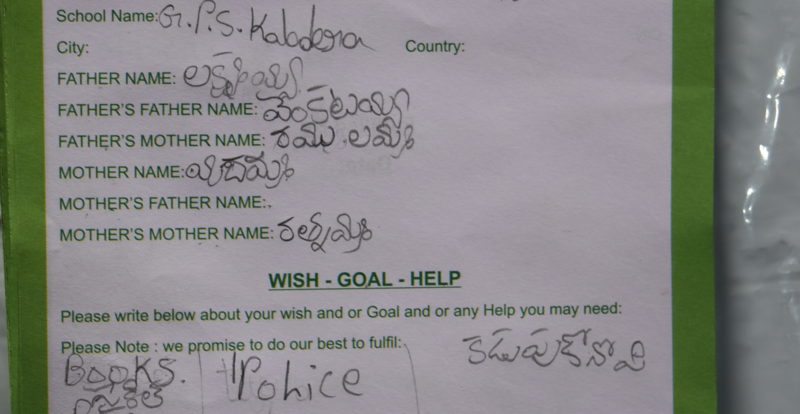 School Name: G.P.S. Kabdera
City: Country:
FATHER NAME: లక్ష్మయ్య
FATHER'S FATHER NAME: వెంకటయ్య
FATHER'S MOTHER NAME: రాములమ్మ
MOTHER NAME:
MOTHER'S FATHER NAME:.
MOTHER'S MOTHER NAME: రత్నమ్మ
WISH - GOAL - HELP
Please write below about your wish and or Goal and or any Help you may need:
Please Note : we promise to do our best to fulfil:
కడుపుకోనొపి
Books. Police